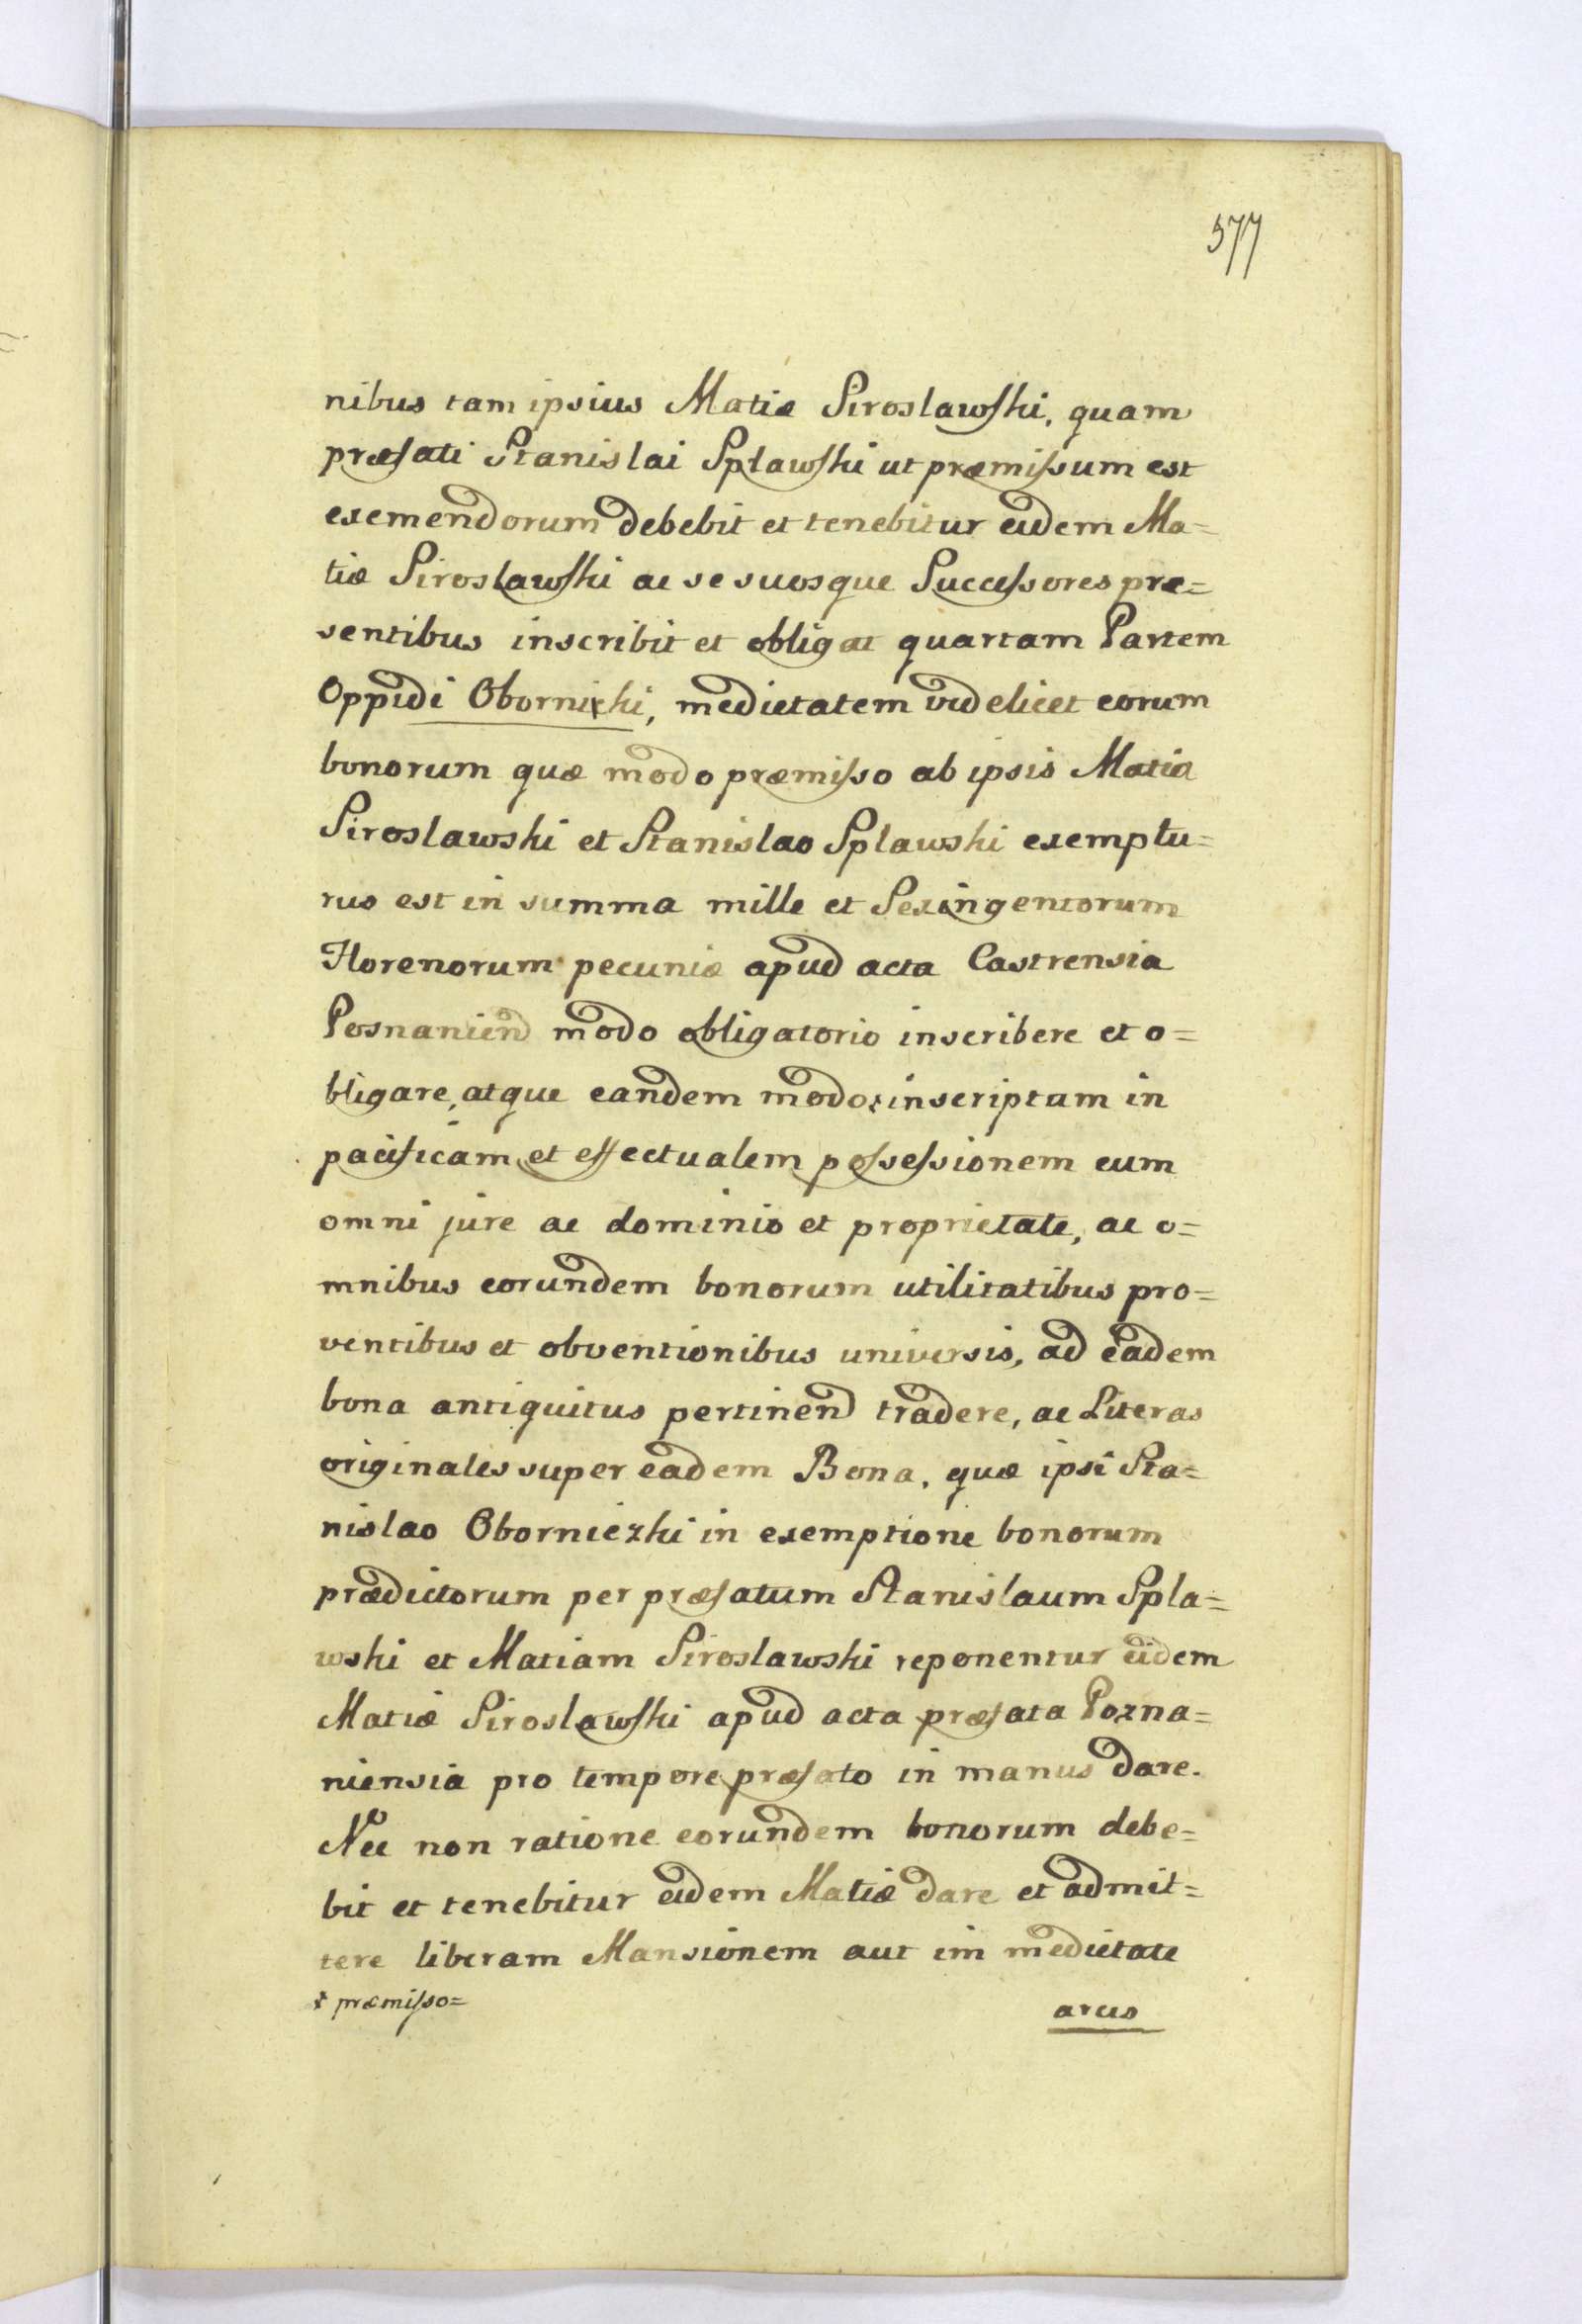 577
nibus tam ipsius Matiæ Siroslawski, quam
præfati Stanislai Splawski ut præmissum est
exemendorum debebit et tenebitur eidem Ma=
tiæ Siroslawski ac se suosque Successores præ=
sentibus inscribit et obligat quartam Partem
Oppidi Obornizki, medietatem videlicet eorum
bonorum quæ modo præmisso ab ipsis Matia
Siroslawski et Stanislao Splawski exemptu=
rus est in summa mille et Sexingentorum
Florenorum pecuniæ apud acta Castrensia
Posnanien modo obligatorio inscribere et o=
bligare, atque eandem modo * inscriptam in
pacificam et effectualem possessionem cum
omni jure ac dominio et proprietate, ac o=
mnibus eorundem bonorum utilitatibus pro=
ventibus et obventionibus universis, ad eadem
bona antiquitus pertinen tradere, ac Literas
originales super eadem Bona, quæ ipsi Sta=
nislao Oborniezki in exemptione bonorum
prædictorum per præfatum Stanislaum Spla=
wski et Matiam Siroslawski reponentur eidem
Matiæ Siroslawski apud acta præfata Pozna=
niensia pro tempore præfato in manus dare.
Nec non ratione eorundem bonorum debe=
bit et tenebitur eidem Matiæ dare et admit=
tere liberam Mansionem aut im medietate
* præmisso=
arcis